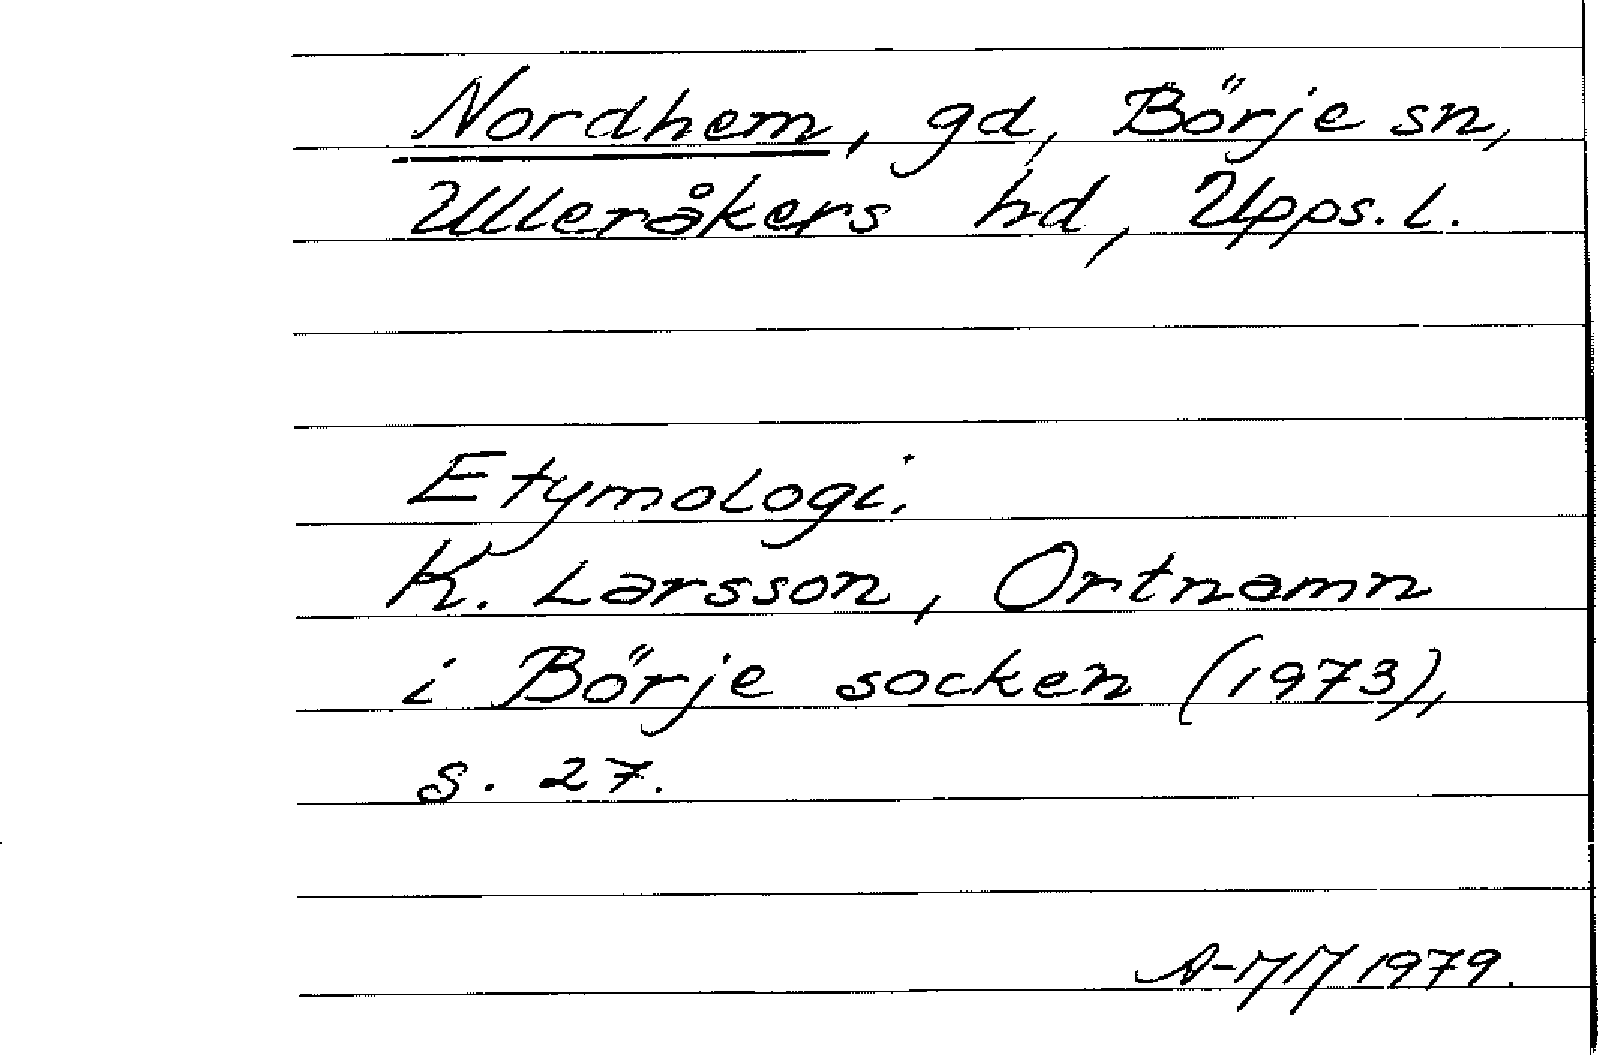 Nordhem, gd, Börje sn,
Ulleråkers hd, Upps. l.
Etymologi.
K. Larsson, Ortnamn
i Börje socken (1973),
s. 27.
1979.